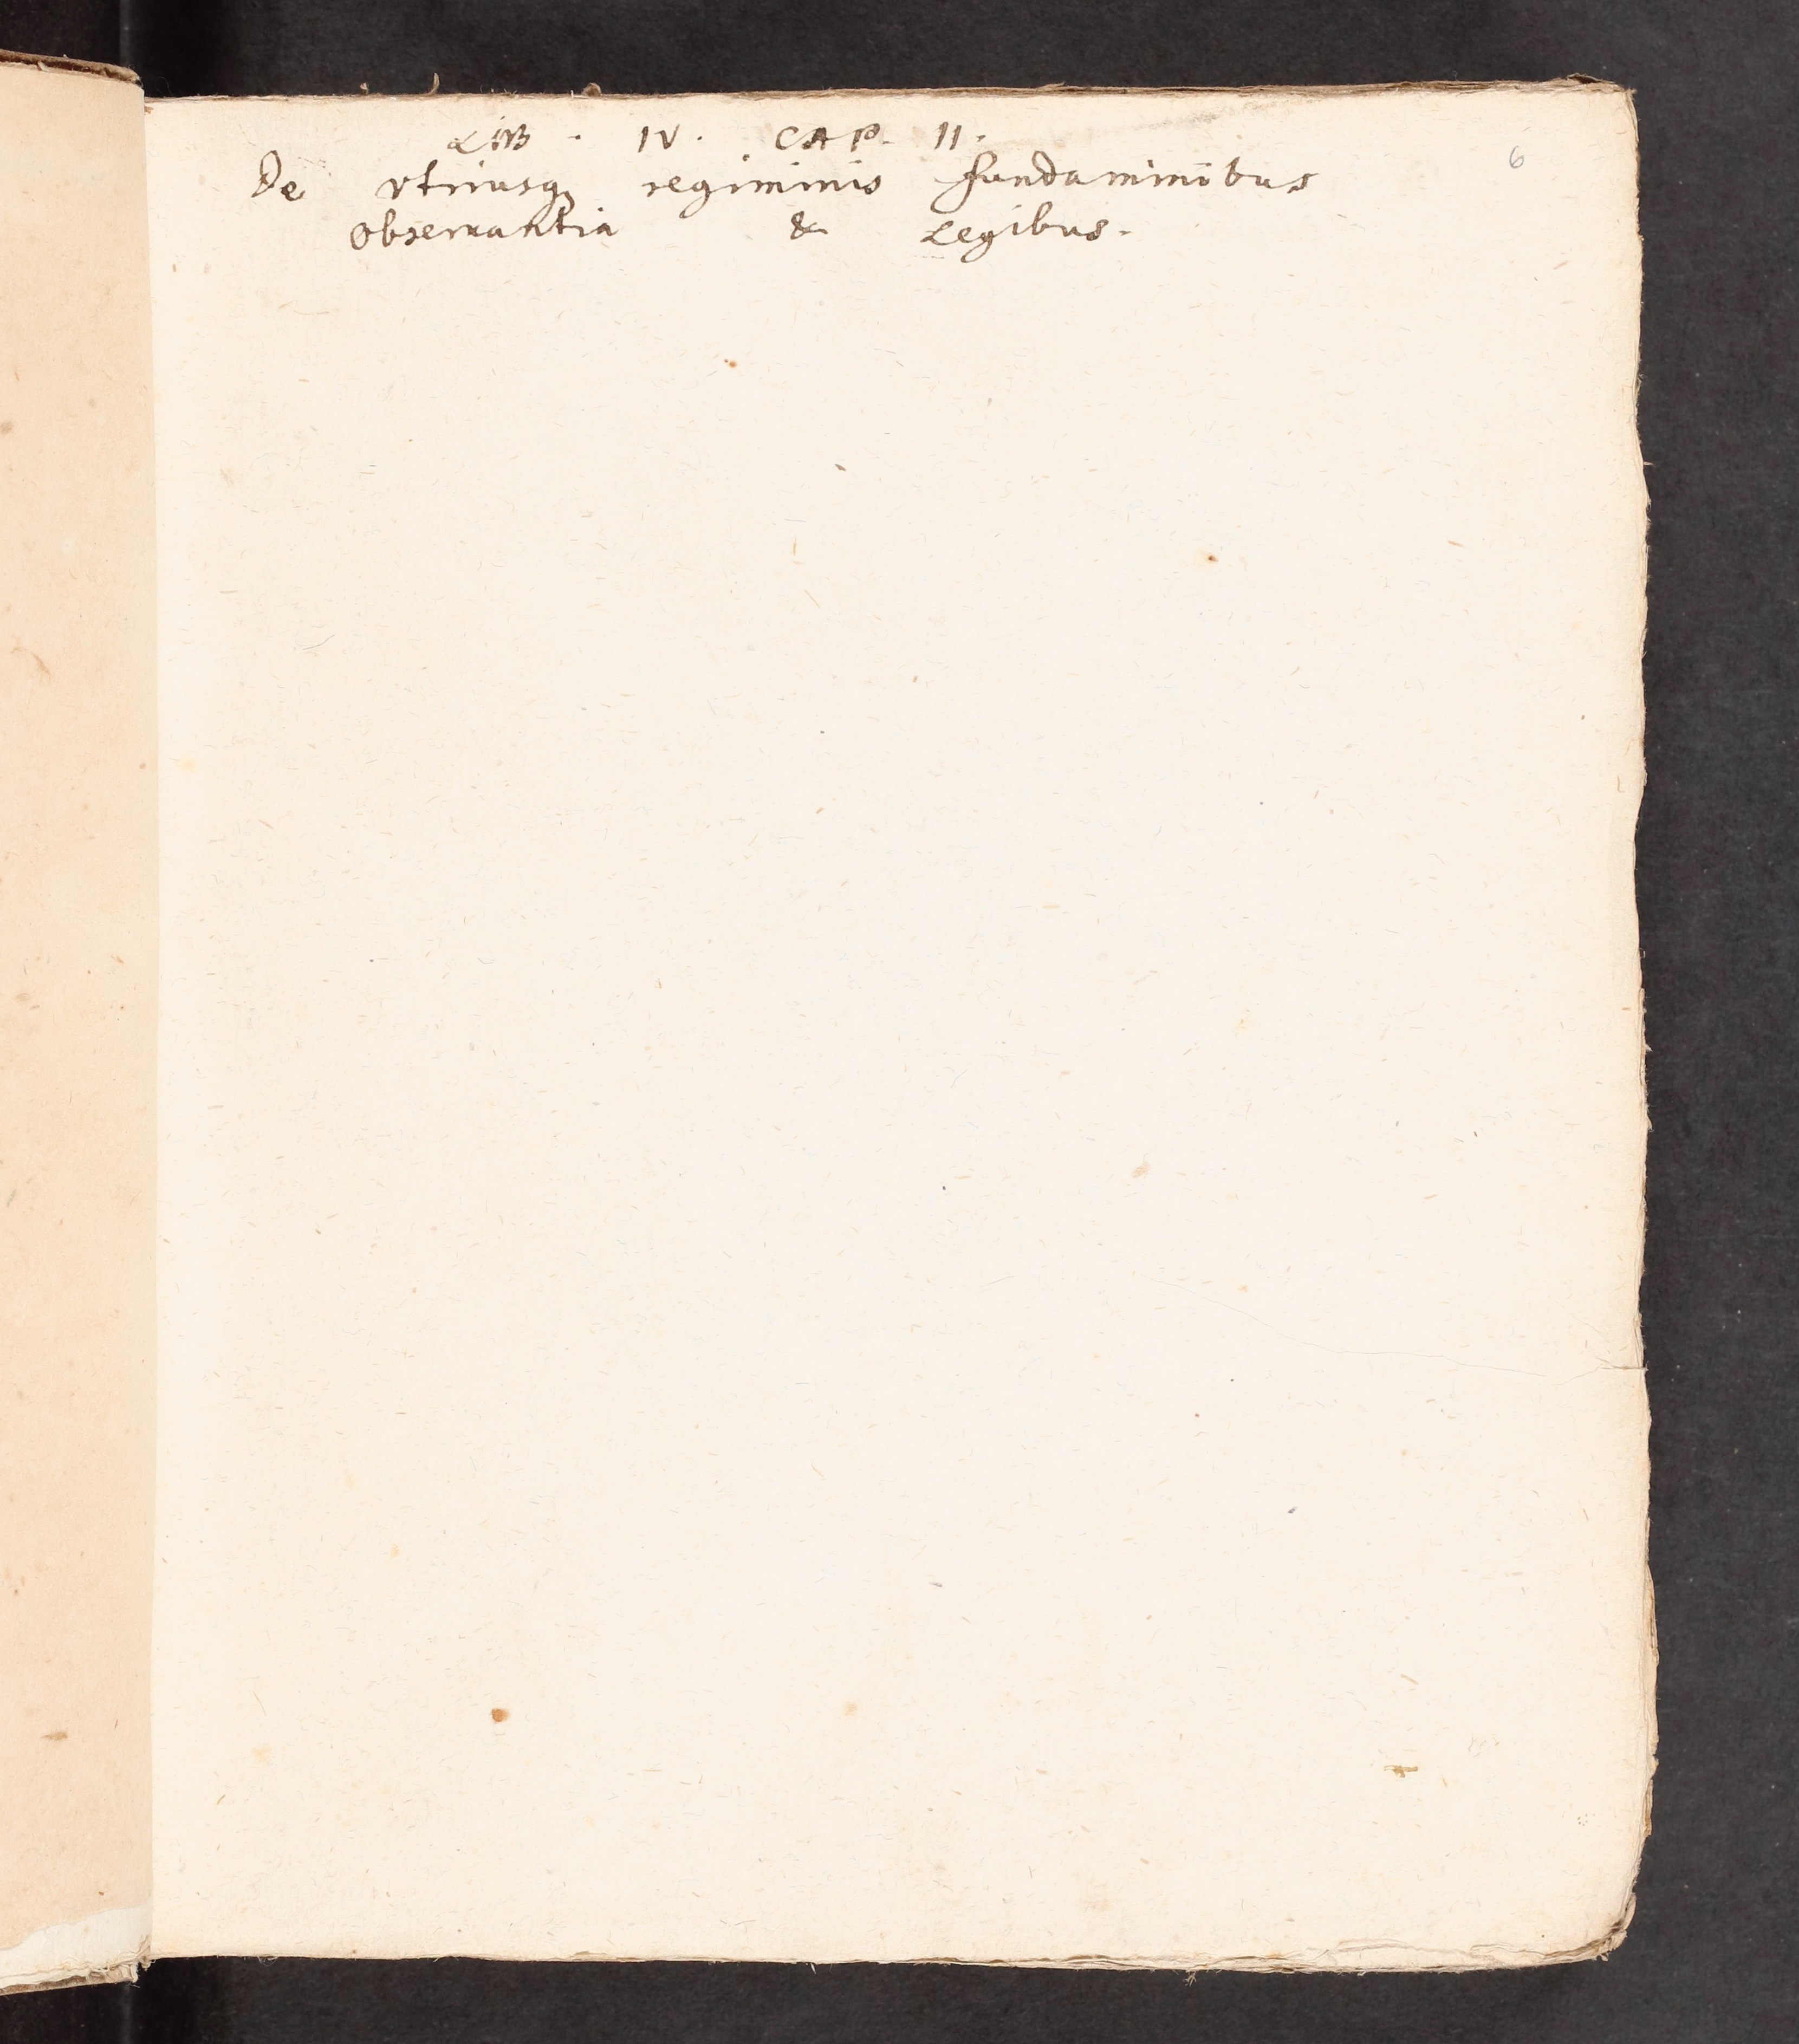 LIB. IV. CAP. II.
6
De vtriusq; regiminis fundaminibus
obseruantia & Legibus.